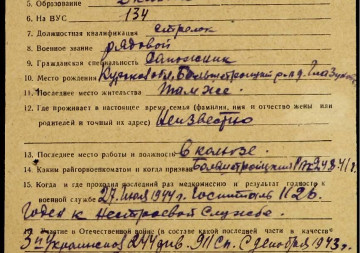 5. Образование
6. На ВУС 134
7. Должностная квалификация стрелок
8. Военное звание рядовой
9. Гражданская специальность Сапожник
10. Место рождения
11. Последнее место жительства Там же.
12. Где проживает в настоящее время семья (фамилия, имя и отчество жены или
родителей и точный их адрес) Неизвестно
13. Последнее место работы и должность в колхозе.
14. Каким райгорвоенкоматом и когда призван
15. Когда и где проходил последний раз медкомиссию и результат годности к
военной службе 27. 1944 г. Госпиталь
Годен к нестроевой службе.
Участие в Отечественной войне (в составе какой последней части и в качестве
3й Украинской 244 див. С декабря 1943 г.